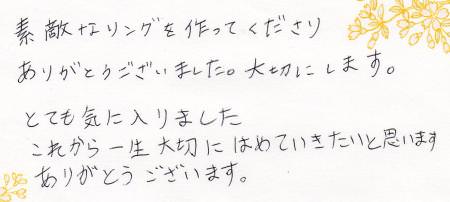 素敵なリングを作ってくださり
ありがとうございました。大切にします。
とても気に入りました
これから一生大切にはめていきたいと思います
ありがとうございます。